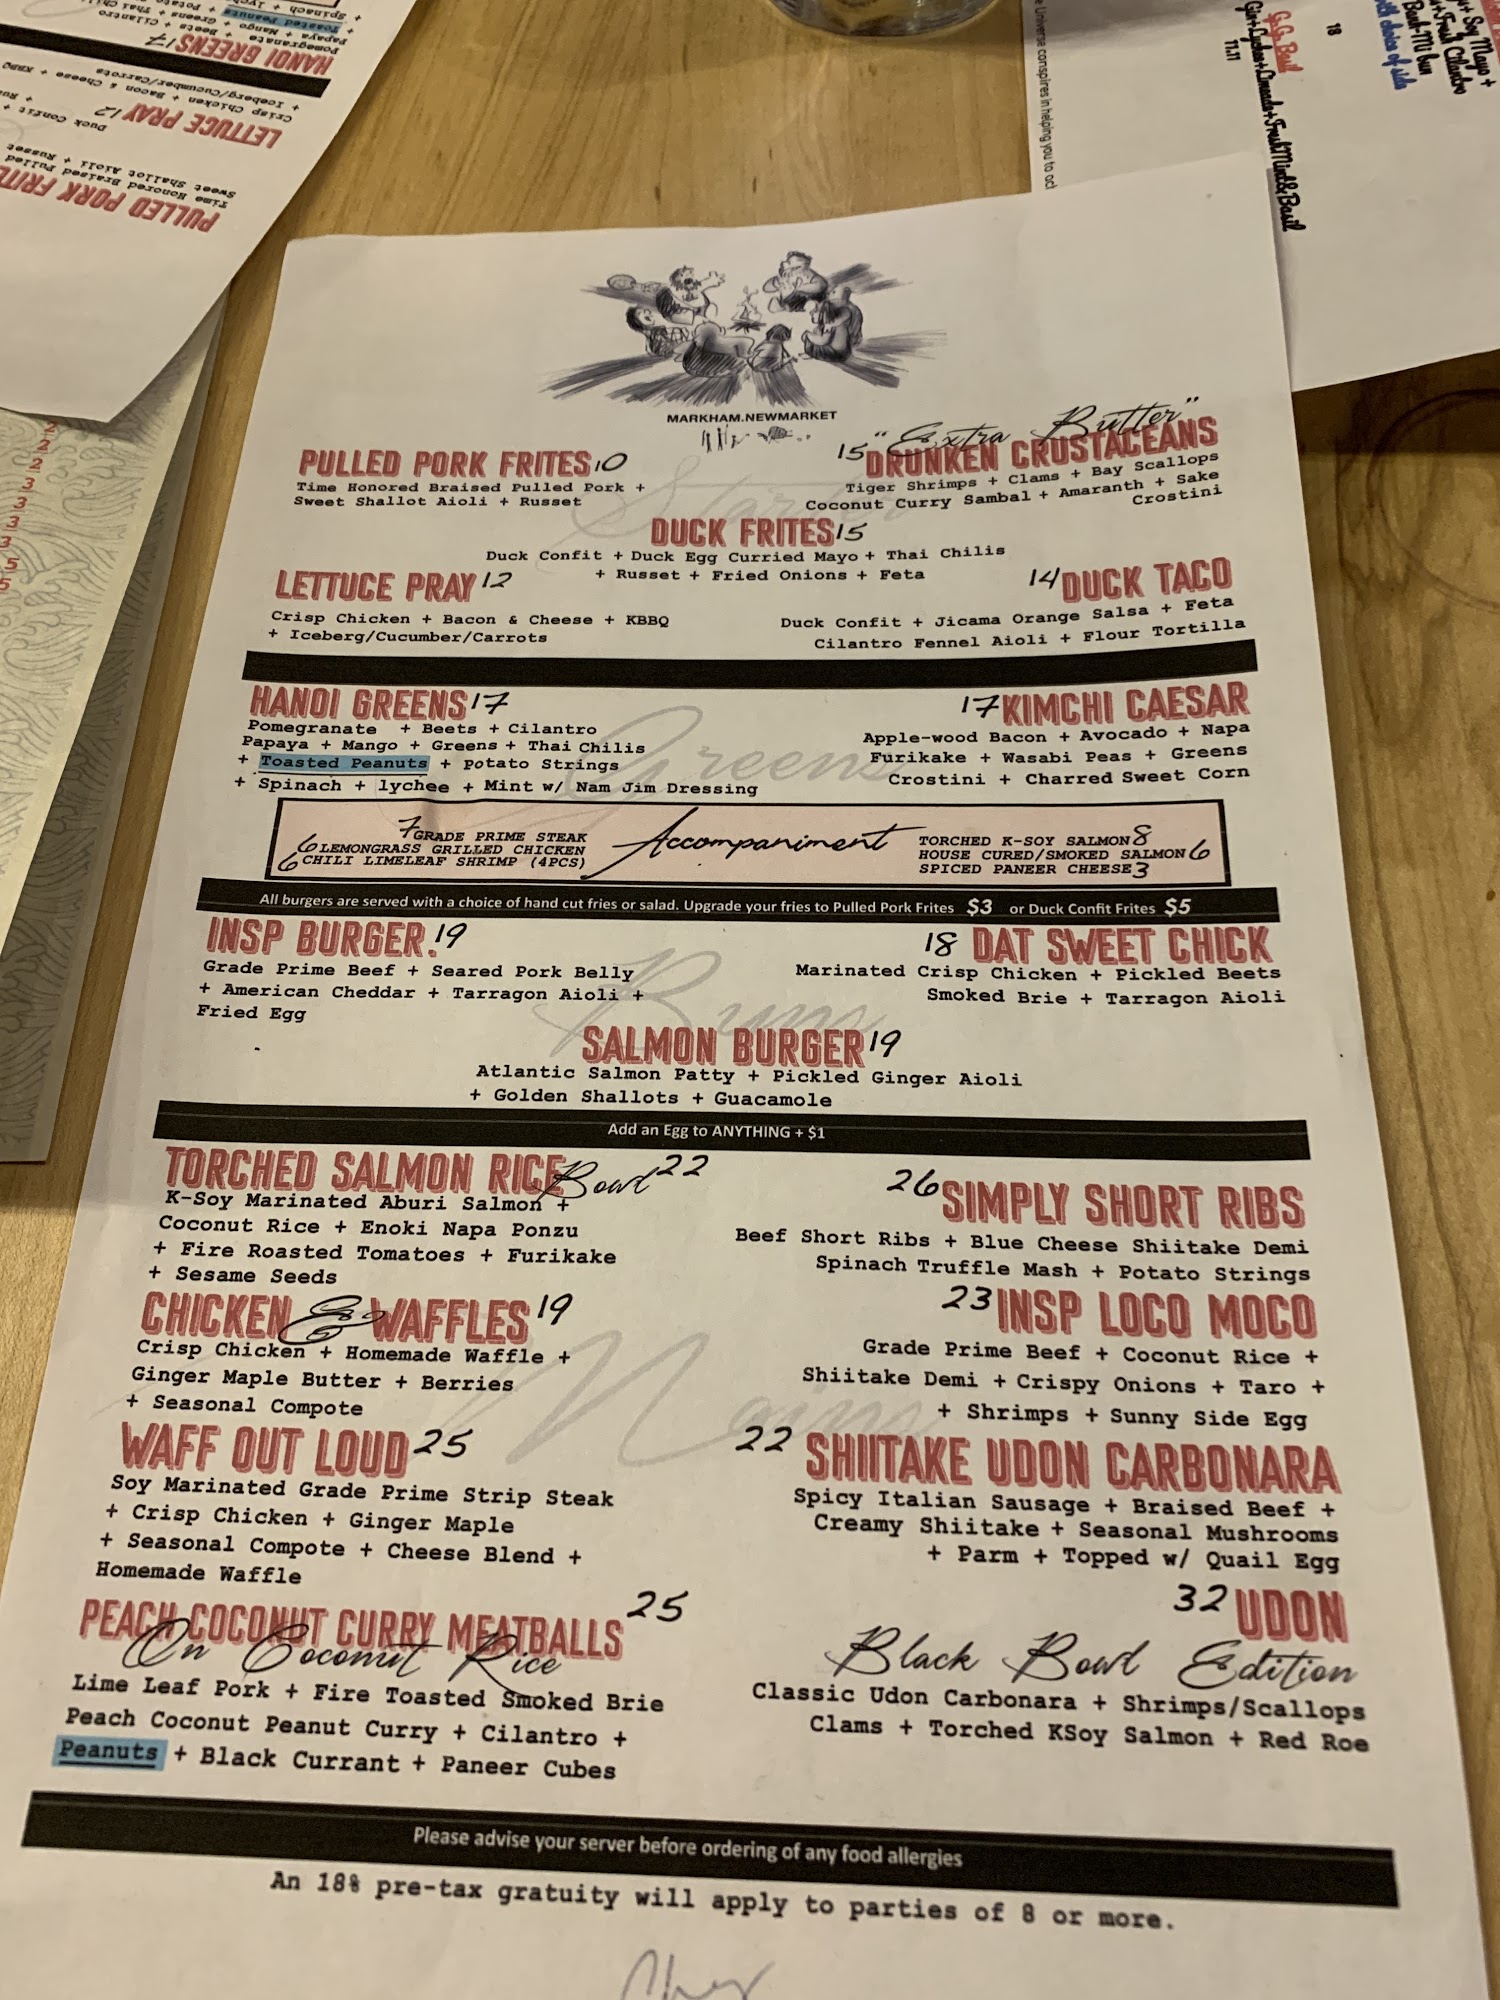 MARKHAM.NEWMARKET
Starters
PULLED PORK FRITES 10
Time Honored Braised Pulled Pork +
Sweet Shallot Aioli + Russet
"Extra Butter"
15 DRUNKEN CRUSTACEANS
Tiger Shrimps + Clams + Bay Scallops
Coconut Curry Sambal + Amaranth + Sake
Crostini
DUCK FRITES 15
Duck Confit + Duck Egg Curried Mayo + Thai Chilis
+ Russet + Fried Onions + Feta
LETTUCE PRAY 12
Crisp Chicken + Bacon & Cheese + KBBQ
+ Iceberg/Cucumber/Carrots
14 DUCK TACO
Duck Confit + Jicama Orange Salsa + Feta
Cilantro Fennel Aioli + Flour Tortilla
Greens
HANOI GREENS 17
Pomegranate + Beets + Cilantro
Papaya + Mango + Greens + Thai Chilis
+ Toasted Peanuts + Potato Strings
+ Spinach + lychee + Mint w/ Nam Jim Dressing
17 KIMCHI CAESAR
Apple-wood Bacon + Avocado + Napa
Furikake + Wasabi Peas + Greens
Crostini + Charred Sweet Corn
Accompaniment
7 GRADE PRIME STEAK
6 LEMONGRASS GRILLED CHICKEN
6 CHILI LIMELEAF SHRIMP (4PCS)
TORCHED K-SOY SALMON 8
HOUSE CURED/SMOKED SALMON 6
SPICED PANEER CHEESE 3
All burgers are served with a choice of hand cut fries or salad. Upgrade your fries to Pulled Pork Frites $3 or Duck Confit Frites $5
Buns
INSP BURGER. 19
Grade Prime Beef + Seared Pork Belly
+ American Cheddar + Tarragon Aioli +
Fried Egg
18 DAT SWEET CHICK
Marinated Crisp Chicken + Pickled Beets
Smoked Brie + Tarragon Aioli
SALMON BURGER 19
Atlantic Salmon Patty + Pickled Ginger Aioli
+ Golden Shallots + Guacamole
Add an Egg to ANYTHING + $1
Mains
TORCHED SALMON RICE Bowl 22
K-Soy Marinated Aburi Salmon +
Coconut Rice + Enoki Napa Ponzu
+ Fire Roasted Tomatoes + Furikake
+ Sesame Seeds
26 SIMPLY SHORT RIBS
Beef Short Ribs + Blue Cheese Shiitake Demi
Spinach Truffle Mash + Potato Strings
CHICKEN & WAFFLES 19
Crisp Chicken + Homemade Waffle +
Ginger Maple Butter + Berries
+ Seasonal Compote
23 INSP LOCO MOCO
Grade Prime Beef + Coconut Rice +
Shiitake Demi + Crispy Onions + Taro +
+ Shrimps + Sunny Side Egg
WAFF OUT LOUD 25
Soy Marinated Grade Prime Strip Steak
+ Crisp Chicken + Ginger Maple
+ Seasonal Compote + Cheese Blend +
Homemade Waffle
22 SHIITAKE UDON CARBONARA
Spicy Italian Sausage + Braised Beef +
Creamy Shiitake + Seasonal Mushrooms
+ Parm + Topped w/ Quail Egg
PEACH COCONUT CURRY MEATBALLS 25
On Coconut Rice
Lime Leaf Pork + Fire Toasted Smoked Brie
Peach Coconut Peanut Curry + Cilantro +
Peanuts + Black Currant + Paneer Cubes
32 UDON
Black Bowl Edition
Classic Udon Carbonara + Shrimps/Scallops
Clams + Torched KSoy Salmon + Red Roe
Please advise your server before ordering of any food allergies
An 18% pre-tax gratuity will apply to parties of 8 or more.
HANOI GREENS 17
Pomegranate + Beets
Papaya + Mango + Greens + Thai
Toasted Peanuts
LETTUCE PRAY 12
Crisp Chicken + Bacon & Cheese + KBBQ
+ Iceberg/Cucumber/Carrots
Duck Confit +
PULLED PORK
Time Honored Braised Pulled
Sweet Shallot Aioli + Russet
2
2
2
3
3
3
3
5
5
Universe conspires in helping you to
G.G. Basil
11.11
18
Soy Mayo +
Cilantro
Banh-Mi bun
with choice of side